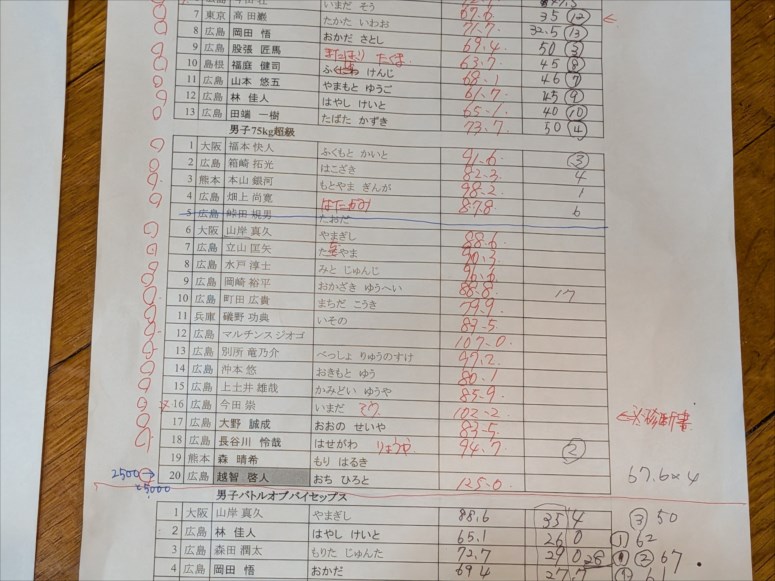 いまだ そう
7 東京 高田 巖 たかた いわお 67.6 35 ⑫ ←
8 広島 岡田 悟 おかだ さとし 32.5 ⑬
9 広島 股張 匠馬 またはり たくま 69.4 50 ③
10 島根 福庭 健司 ふくば けんじ 63.7 45 ⑧
11 広島 山本 悠五 やまもと ゆうご 68.1 46 ⑦
12 広島 林 佳人 はやし けいと 61.7 45 ⑨
13 広島 田端 一樹 たばた かずき 65.1 40 ⑩
73.7 50 ④
男子75kg超級
1 大阪 福本 快人 ふくもと かいと 91.6 ③
2 広島 箱崎 拓光 はこざき 82.3 4
3 熊本 本山 銀河 もとやま ぎんが 98.2 1
4 広島 畑上 尚寛 はたがみ 87.8 6
5 広島 峠田 視男 たおだ
6 大阪 山岸 真久 やまぎし 88.6
7 広島 立山 匡矢 たてやま 90.3
8 広島 水戸 淳士 みと じゅんじ 96.6
9 広島 岡崎 裕平 おかざき ゆうへい 88.8 17
10 広島 町田 広貴 まちだ こうき 79.9
11 兵庫 礒野 功典 いその 83.5
12 広島 マルチンス ジオゴ 107.0
13 広島 別所 竜乃介 べっしょ りゅうのすけ 97.2
14 広島 沖本 悠 おきもと ゆう 80.1
15 広島 上土井 雄哉 かみどい ゆうや 85.9
16 広島 今田 崇 いまだ 102.2 ←※診断書
17 広島 大野 誠成 おおの せいや 83.5
18 広島 長谷川 怜哉 はせがわ りょうや 94.7 ②
19 熊本 森 晴希 もり はるき
2500→ 20 広島 越智 啓人 おち ひろと 125.0 67.6×4
5000
男子バトルオブバイセップス
1 大阪 山岸 真久 やまぎし 88.6 35 4 ③ 50
2 広島 林 佳人 はやし けいと 65.1 26 0 ① 62
3 広島 森田 潤太 もりた じゅんた 72.7 29 0 28 ② 67
4 広島 岡田 悟 おかだ 69.4 27.7 61